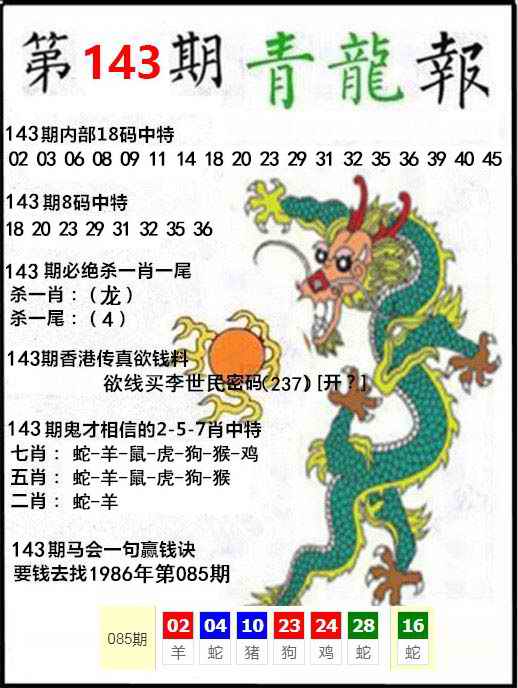 第143期青龍報
143期内部18码中特
02 03 06 08 09 11 14 18 20 23 29 31 32 35 36 39 40 45
143期8码中特
18 20 23 29 31 32 35 36
143期必绝杀一肖一尾
杀一肖：（龙）
杀一尾：（4）
143期香港传真欲钱料
欲线买李世民密码(237)[开？]
143期鬼才相信的2-5-7肖中特
七肖：蛇-羊-鼠-虎-狗-猴-鸡
五肖：蛇-羊-鼠-虎-狗-猴
二肖：蛇-羊
143期马会一句赢钱诀
要钱去找1986年第085期
085期 02 04 10 23 24 28 16
羊 蛇 猪 狗 鸡 蛇 蛇